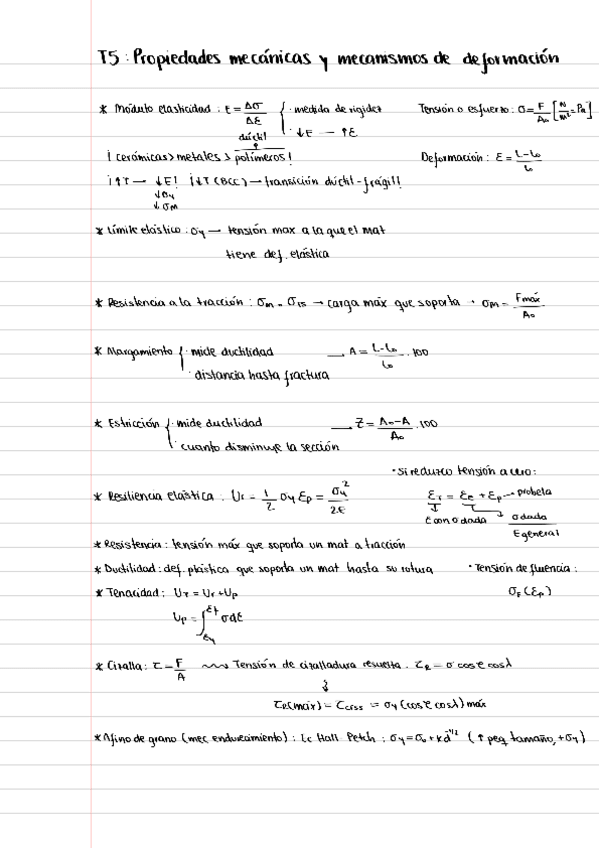 T5: Propiedades mecánicas y mecanismos de deformación
* Módulo elasticidad : E = Δσ/Δε { · medida de rigidez · ↓E — ↑ε Tensión o esfuerzo: σ = F/A₀ [N/m² = Pa]
dúctil
¡cerámicas > metales > polímeros! Deformación: ε = L-L₀/L₀
¡↑T — ↓E! ¡↓T (BCC) — transición dúctil-frágil!
↓σy
↓σM
* Límite elástico: σy → tensión max a la que el mat
tiene def. elástica
* Resistencia a la tracción : σM = σTS → carga máx que soporta · σM = Fmáx/A₀
* Alargamiento { · mide ductilidad — A = L-L₀/L₀ · 100
· distancia hasta fractura
* Estricción { · mide ductilidad — Z = A₀-A/A₀ · 100
· cuanto disminuye la sección
· Si reduzco tensión a cero:
* Resiliencia elástica : Ur = 1/2 σy εp = σy²/2E εT = εe + εp → probeta
ε con σ dada σ dada/E general
* Resistencia: tensión máx que soporta un mat a tracción
* Ductilidad: def. plástica que soporta un mat hasta su rotura · Tensión de fluencia :
* Tenacidad: UT = Ur + Up σF (εp)
Up = ∫ σdε
* Cizalla: τ = F/A ⇝ Tensión de cizalladura resuelta. τR = σ cosφ cosλ
↓
τR(max) = τcrss = σy (cosφ cosλ) máx
* Afino de grano (mec endurecimiento) : Ec Hall Petch : σy = σ₀ + kd^-1/2 (↑ peq tamaño, +σy)